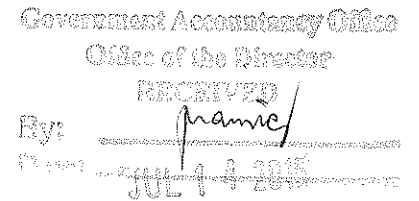 Government Accountancy Office
Office of the Director
RECEIVED
By:
JUL 1 4